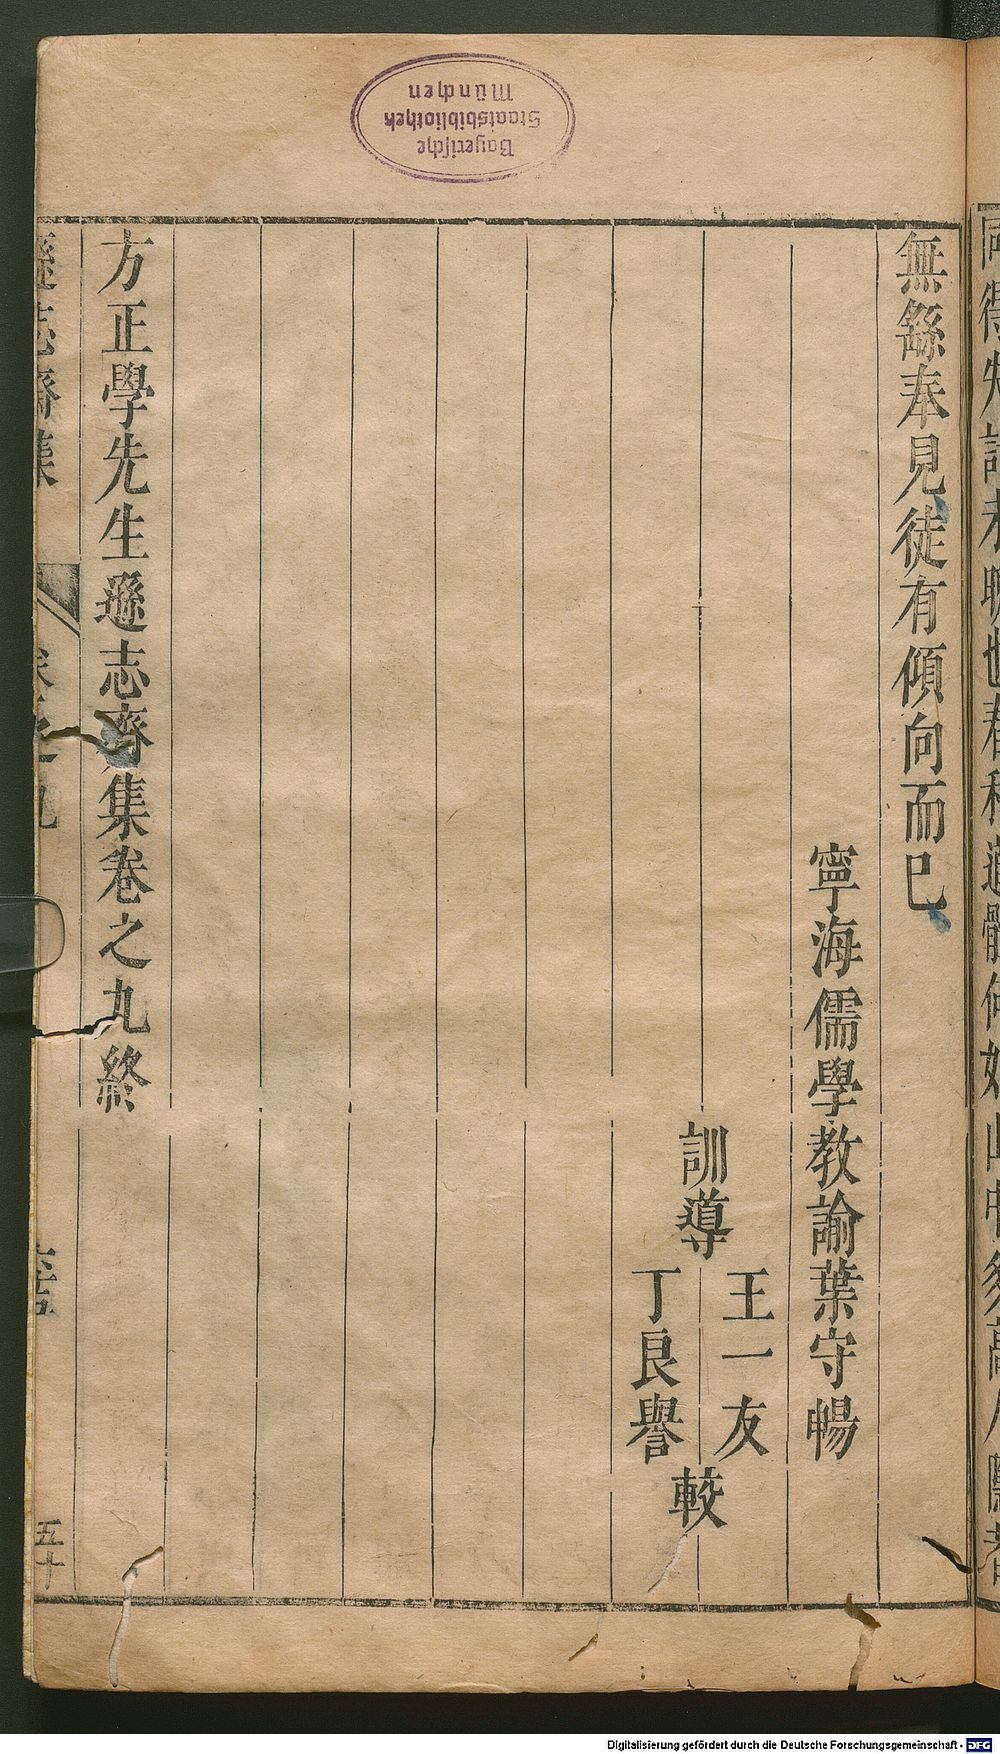 無繇奉見徒有傾向而已
寧海儒學教諭葉守暢
訓導
王一友
丁良譽
較
方正學先生遜志齋集卷之九終
遜志齋集
卷之九
五十
Bayerische
Staatsbibliothek
München
Digitalisierung gefördert durch die Deutsche Forschungsgemeinschaft - DFG